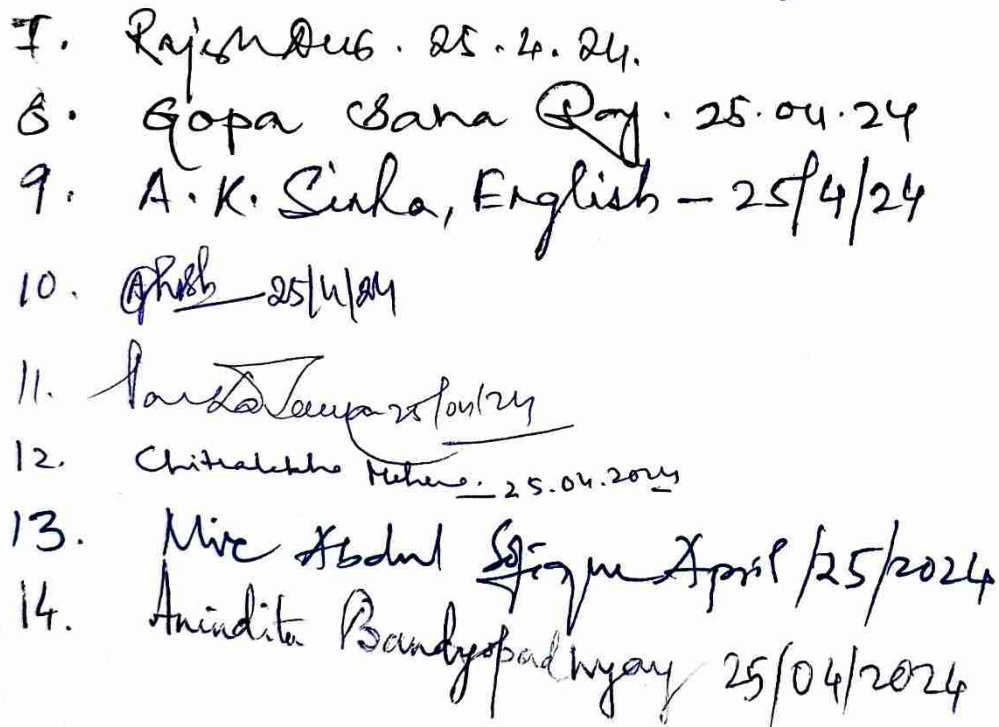 7. Rajesh Das. 25.4.24.
8. Gopa Saha Roy. 25.04.24
9. A. K. Sinha, English - 25/4/24
10. 25/4/24
11. 25/04/24
12. Chitralekha Mehera. 25.04.2024
13. Mir Abdul Sofique April/25/2024
14. Anindita Bandyopadhyay 25/04/2024